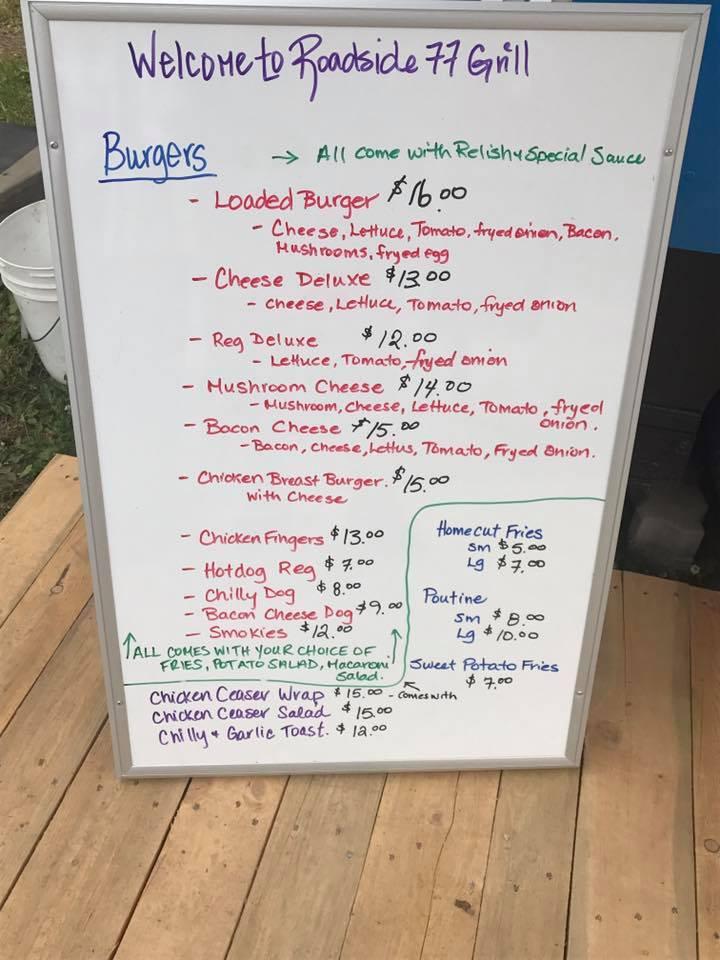 Welcome to Roadside 77 Grill
Burgers → All come with Relish + Special Sauce
- Loaded Burger $16.00
- Cheese, Lettuce, Tomato, fryed onion, Bacon,
Mushrooms, fryed egg
- Cheese Deluxe $13.00
- cheese, Lettuce, Tomato, fryed onion
- Reg Deluxe $12.00
- Lettuce, Tomato, fryed onion
- Mushroom Cheese $14.00
- Mushroom, cheese, Lettuce, Tomato, fryed
onion.
- Bacon Cheese $15.00
- Bacon, cheese, Lettus, Tomato, Fryed Onion.
- Chicken Breast Burger. $15.00
with Cheese
- Chicken Fingers $13.00
- Hotdog Reg $7.00
- Chilly Dog $8.00
- Bacon Cheese Dog $9.00
- Smokies $12.00
↑ ALL COMES WITH YOUR CHOICE OF ↑
FRIES, POTATO SALAD, Macaroni
Salad.
Homecut Fries
sm $5.00
Lg $7.00
Poutine
sm $8.00
Lg $10.00
Sweet Potato Fries
$7.00
Chicken Ceaser Wrap $15.00 - comes with
Chicken Ceaser Salad $15.00
Chilly + Garlic Toast. $12.00